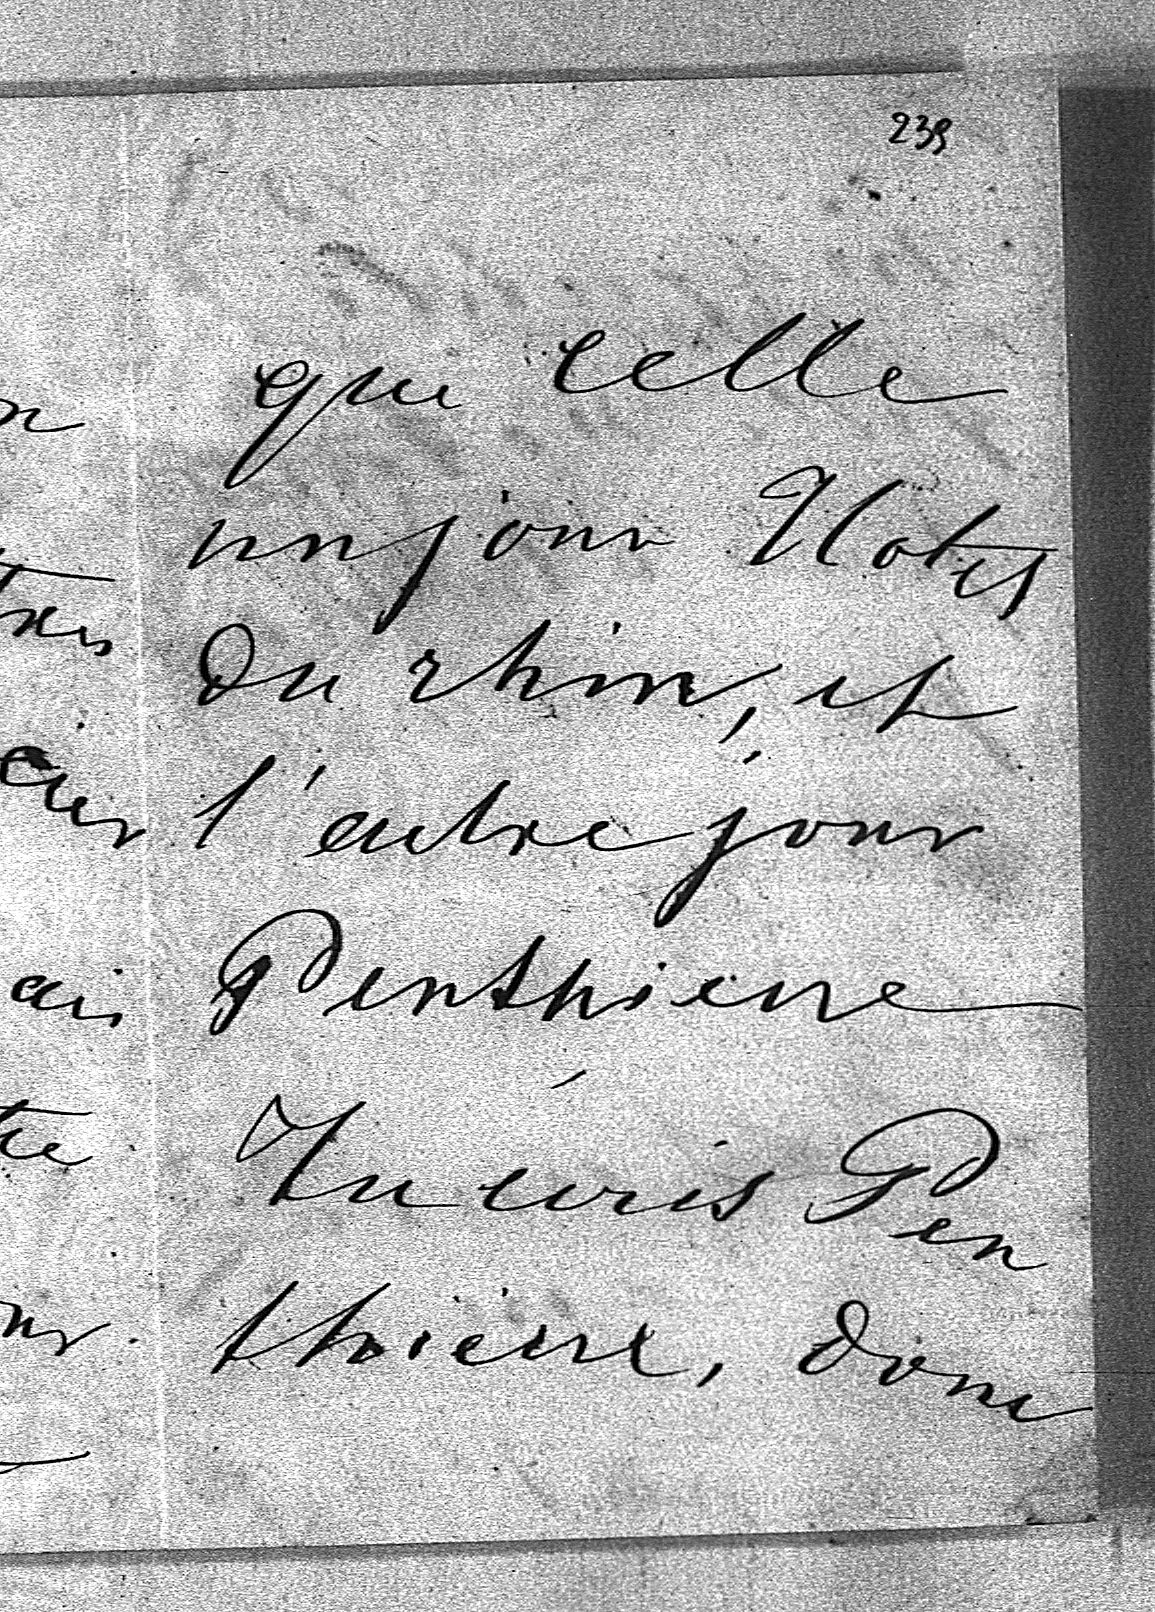 239
que celle
un jour Notes
du rhin, et
l'autre jour
Penthièvre
Tu écris Pen
thièvre, donc